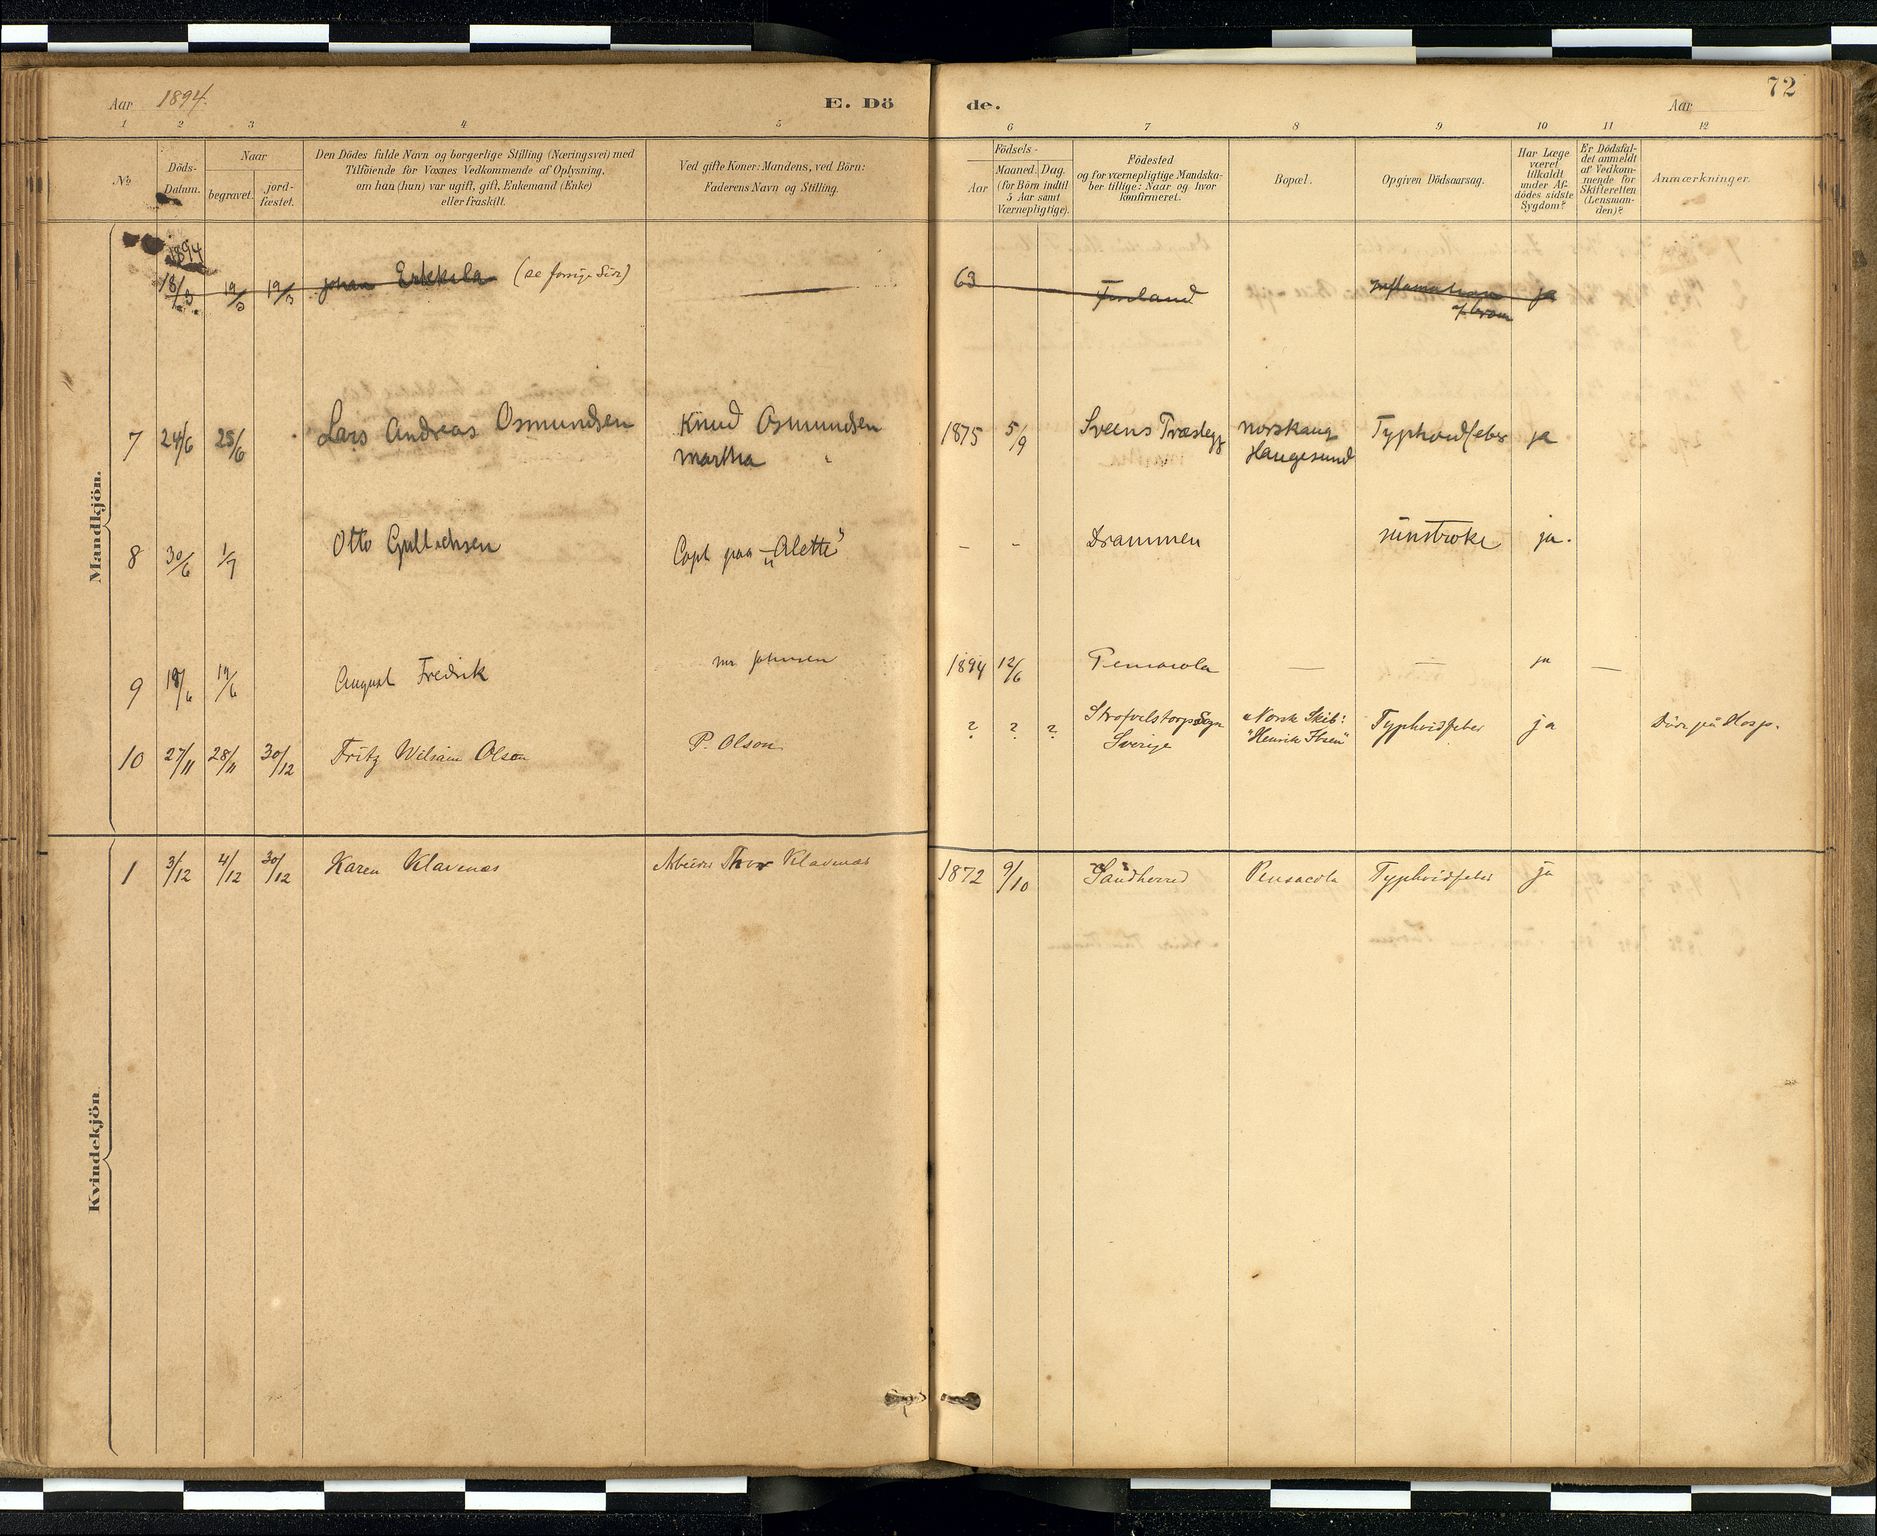 Aar 1894.
E. Dö
de.
Aar
72
1 2 3 4 5
6 7 8 9 10 11 12
No
Döds-
Datum.
Naar
begravet.
jord-
fæstet.
Den Dödes fulde Navn og borgerlige Stilling (Næringsvei) med
Tilföiende for Voxnes Vedkommende af Oplysning,
om han (hun) var ugift, gift, Enkemand (Enke)
eller fraskilt.
Ved gifte Koner: Mandens, ved Börn:
Faderens Navn og Stilling.
Födsels-
Aar
Maaned. Dag.
(for Börn indtil
5 Aar samt
Værnepligtige).
Födested
og for værnepligtige Mandska-
ber tillige: Naar og hvor
konfirmeret.
Bopæl.
Opgiven Dödsaarsag.
Har Læge
været
tilkaldt
under Af-
dödes sidste
Sygdom?
Er Dödsfal-
det anmeldt
af Vedkom-
mende for
Skifteretten
(Lensman-
den)?
Anmærkninger.
Mandkjön.
1894
18/3 19/3 19/3 Johan Erkkila (se forrige Side) 63 Finland Inflamation ja
7 24/6 25/6 Lars Andreas Osmundsen Knud Osmundsen 1875 5/9 Sveens Præstegj Norskaug Typhoidfeber ja
Martha " Haugesund
8 30/6 1/7 Otto Capt paa "Alette" - - Drammen sunstroke ja.
9 18/6 19/6 August Fredrik Mr Johnsen 1894 12/6 Pensacola — — ja —
10 27/11 28/11 30/12 Fritz Wiliam Olson P. Olson ? ? ? Norsk Skib: Typhoidfeber ja Döde på Hosp.
Sverige "Henrik Ibsen"
Kvindekjön.
1 3/12 4/12 30/12 Karen Klavenæs Arbeider Thor Klavenæs 1872 9/10 Sandherred Pensacola Typhoidfeber ja